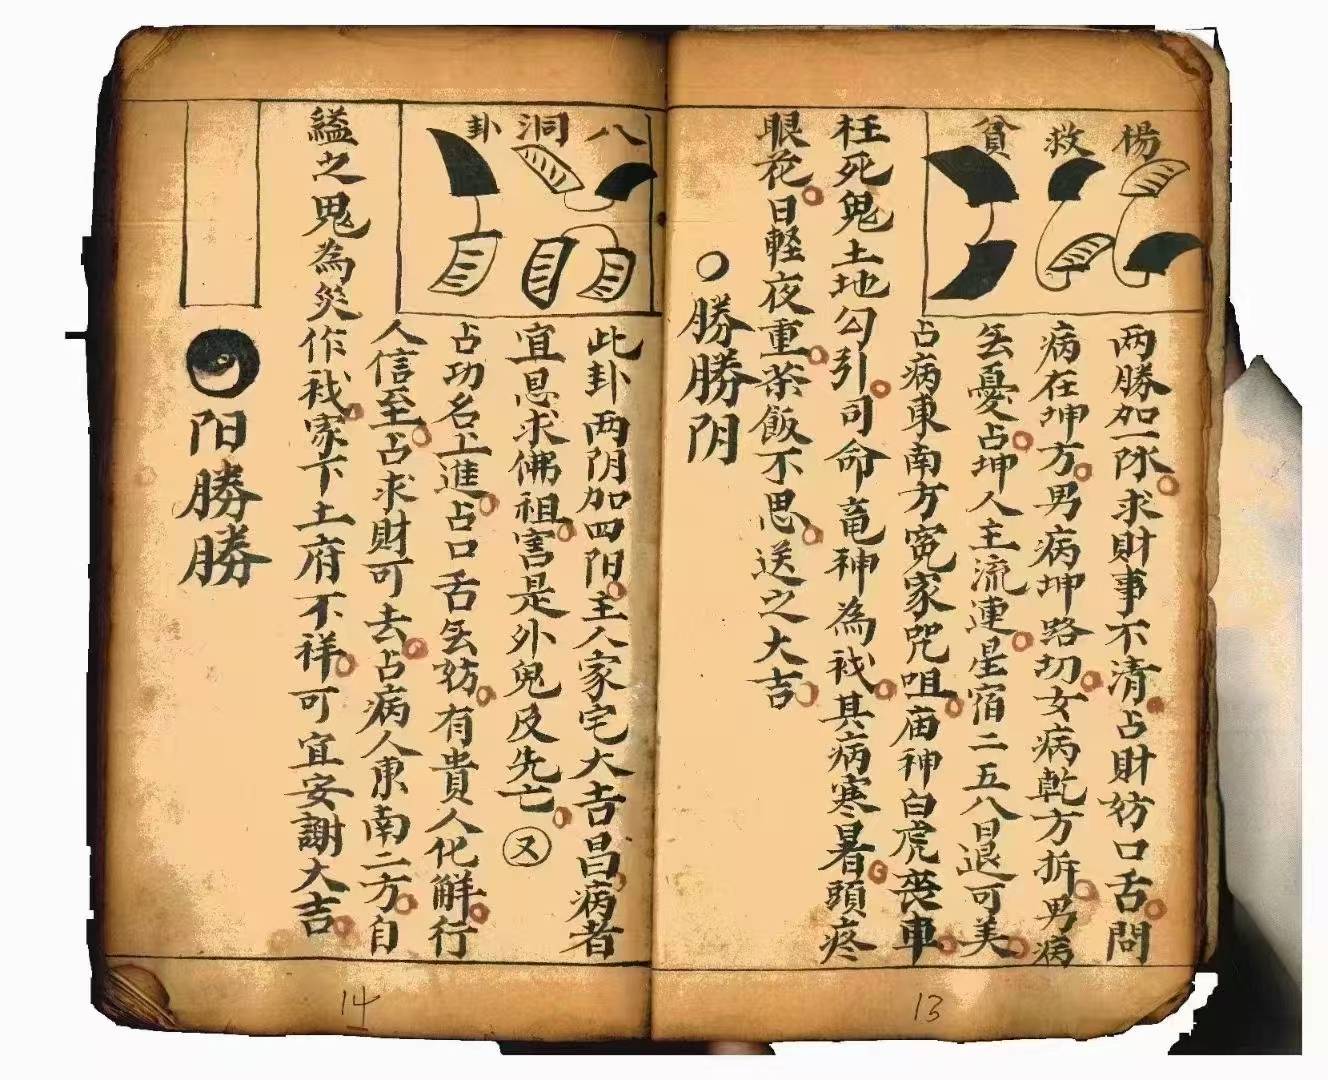 楊救貧
两勝加一阦求財事不清占財妨口舌問
病在坤方男病坤路切女病乾方折男病
無憂占坤人主流連星宿二五八日退可美
占病東南方冤家咒咀庙神白虎喪車
枉死鬼土地勾引司命竜神為戝其病寒暑頭疼
眼花日軽夜重茶飯不思送之大吉
勝勝阴
八洞卦
此卦两阴加四阳主人家宅大吉昌病者
宜恳求佛祖害是外鬼及先亡又
占功名上進占口舌無妨有貴人化解行
人信至占求財可去占病人東南二方自
縊之鬼為災作戝家下土府不祥可宜安謝大吉
阳勝勝
13
14